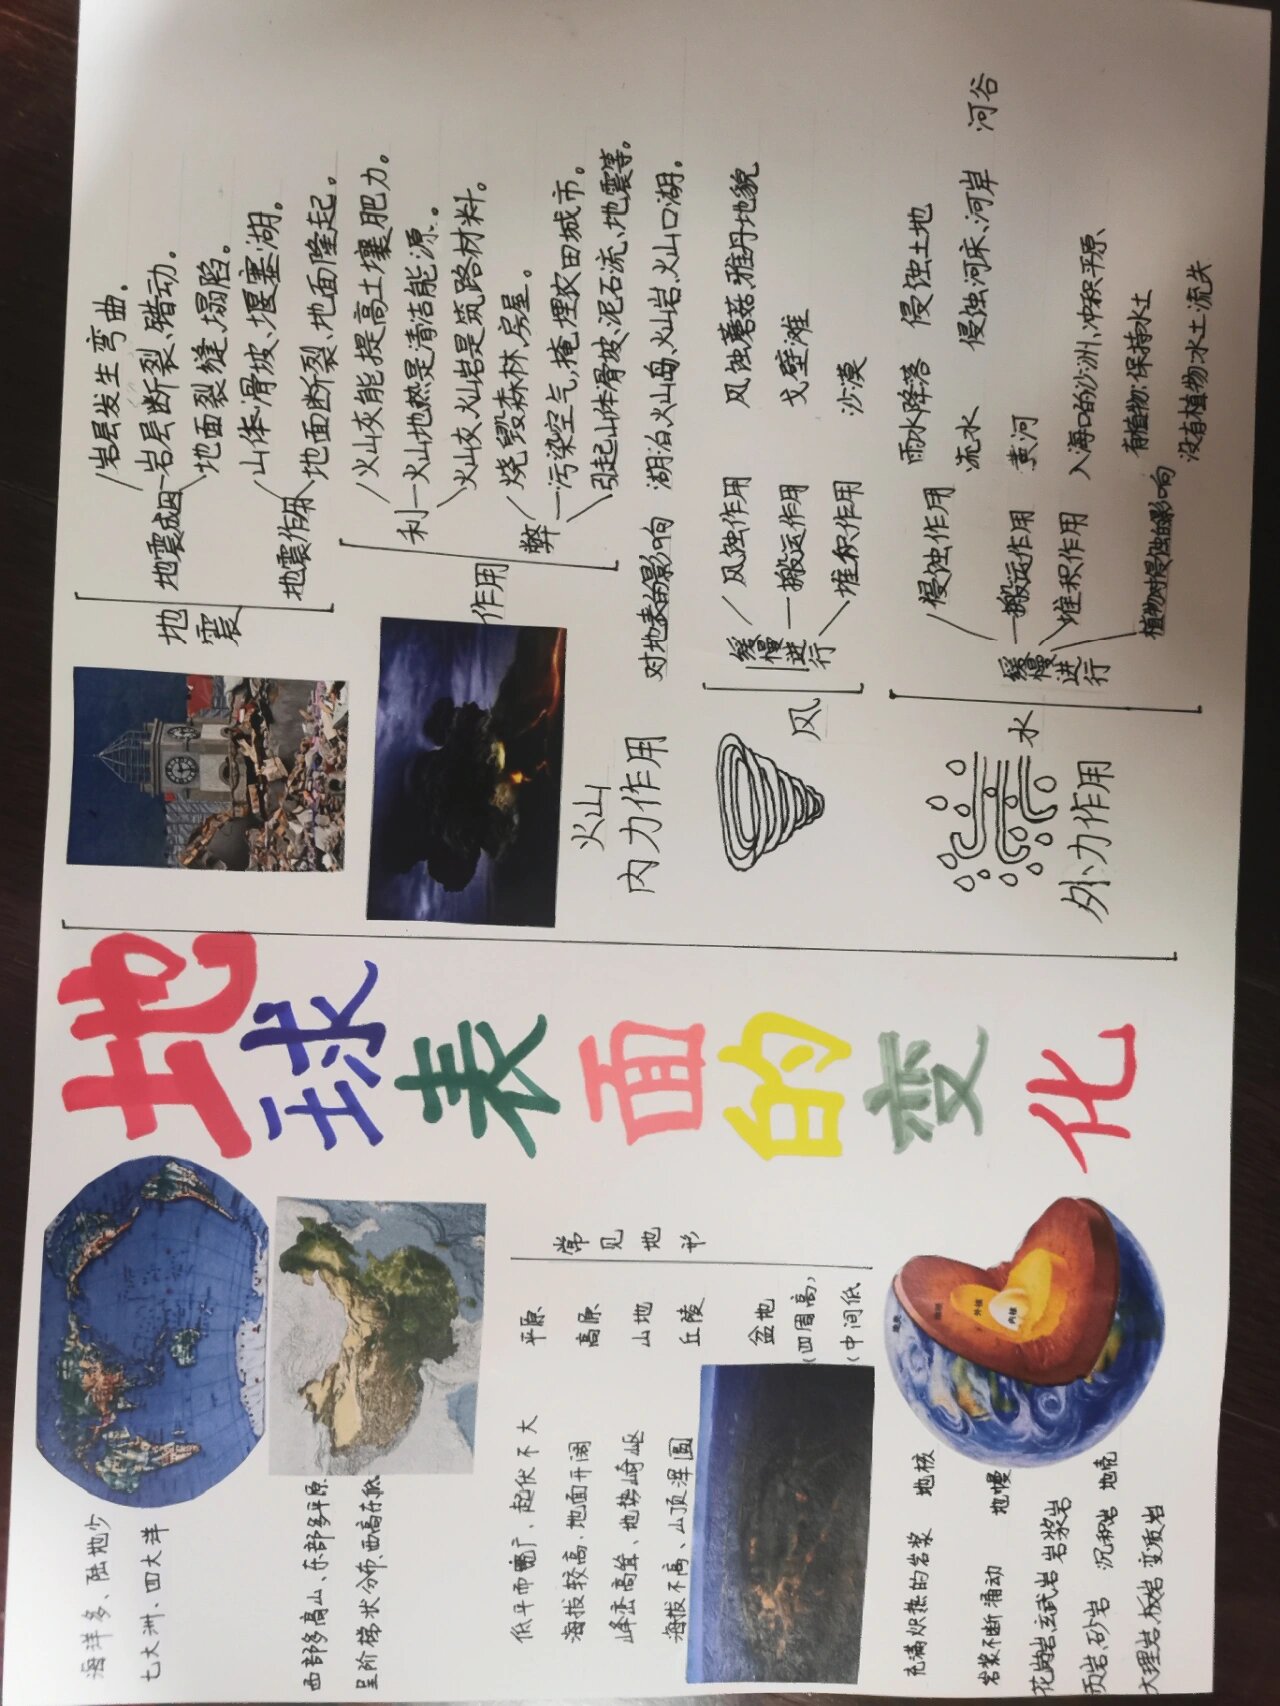 地球表面的变化
海洋多、陆地少
七大洲、四大洋
西部多高山、东部多平原
呈阶梯状分布、西高东低
常见地形
低平而宽广、起伏不大 平原
海拔较高、地面开阔 高原
峰峦高耸、地势崎岖 山地
海拔不高、山顶浑圆 丘陵
盆地
(四周高,
(中间低
充满炽热的岩浆 地核
岩浆不断涌动 地幔
花岗岩、玄武岩 岩浆岩
页岩、砂岩 沉积岩 地壳
大理岩、板岩 变质岩
外核
内核
地震
地震成因
岩层发生弯曲。
岩层断裂、错动。
地面裂缝、塌陷。
地震作用
山体滑坡、堰塞湖。
地面断裂、地面隆起。
火山
作用
利
火山灰能提高土壤肥力。
火山地热是清洁能源。
火山灰、火山岩是筑路材料。
弊
烧毁森林、房屋。
污染空气,掩埋农田城市。
引起山体滑坡、泥石流、地震等。
对地表的影响 湖泊、火山岛、火山岩、火山口湖。
内力作用
风
缓慢进行
风蚀作用 风蚀蘑菇、雅丹地貌
搬运作用 戈壁滩
堆积作用 沙漠
水
缓慢进行
侵蚀作用
雨水降落 侵蚀土地
流水 侵蚀河床、河岸 河谷
搬运作用 黄河
堆积作用 入海口的沙洲、冲积平原、
植物对侵蚀的影响
有植物:保持水土
没有植物:水土流失
外力作用